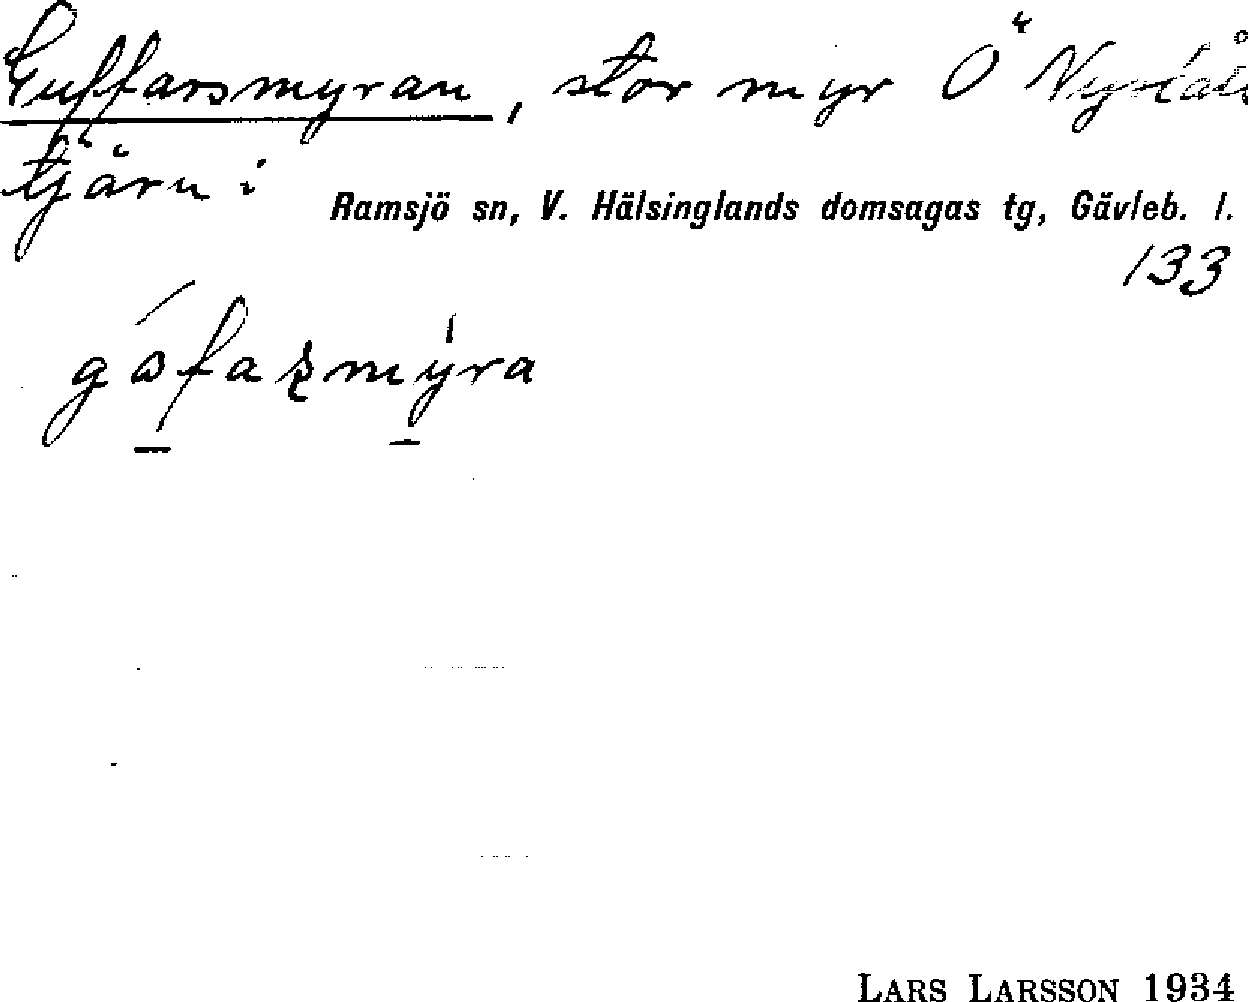 Guffarsmyran, stor myr Ö
tjärn i
Ramsjö sn, V. Hälsinglands domsagas tg, Gävleb. l.
133
LARS LARSSON 1934